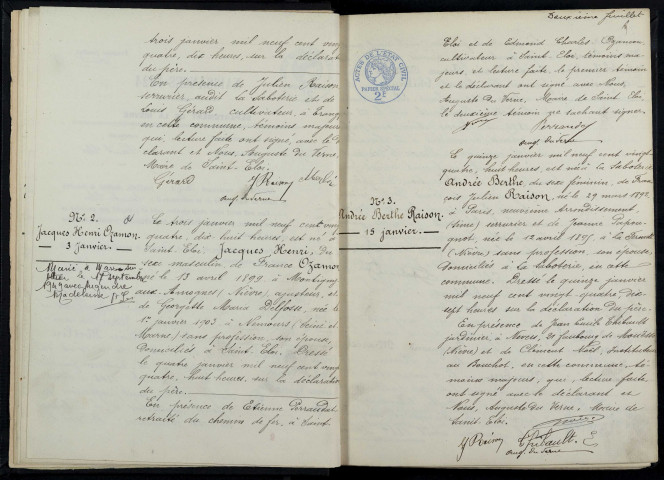 trois janvier mil neuf cent vingt
quatre, dix heures, sur la déclaration
du père.
En présence de Julien Raison
serrurier, audit la Saboterie et de
Louis Gérard cultivateur, à
en cette commune, témoins majeurs
qui, lecture faite ont signé, avec le dé-
clarant et Nous, Auguste du Verne
Maire de Saint-Eloi.
Gérard J. Raison
Aug. du Verne
N° 2.
Jacques Henri Ozamon.
3 janvier.
Marié à
le 17 septembre
1949 avec
Le trois janvier mil neuf cent vingt
quatre, dix huit heures, est né à
Saint-Eloi: Jacques Henri, du
sexe masculin de Ozamon
né le 13 avril 1899 à Montigny
aux Amognes (Nièvre), ajusteur, et
de Georgette Maria Delfosse, née le
1er janvier 1903 à Nemours (Seine et
Marne) sans profession, son épouse,
Domiciliés à Saint-Eloi. Dressé
le quatre janvier mil neuf cent vingt
quatre, huit heures, sur la déclaration
du père.
En présence de Etienne Perraudin
retraité du chemin de fer, à Saint
Deuxième feuillet
Eloi et de Edmond Charles Ozamon
cultivateur à Saint-Eloi, témoins ma-
jeurs, et lecture faite, le premier témoin
et le déclarant ont signé avec Nous,
Auguste du Verne, Maire de Saint-Eloi,
le deuxième témoin ne sachant signer.
Aug. du Verne
ACTES DE L'ETAT CIVIL
PAPIER SPECIAL
2F
N° 3.
Andrée Berthe Raison.
15 janvier.
Le quinze janvier mil neuf cent vingt
quatre, huit heures, est née la Saboterie
Andrée Berthe, du sexe féminin, de Fran-
çois Julien Raison, né le 29 mars 1892
à Paris, neuvième Arrondissement,
(Seine) serrurier et de Jeanne
née le 12 avril 1895 à
(Nièvre) sans profession, son épouse,
Domiciliés à la Saboterie, en cette
commune. Dressé le quinze janvier
mil neuf cent vingt quatre dix
sept heures sur la déclaration du père.
En présence de Jean Emile Thibault
jardinier, à Nevers, 20 faubourg de Mouësse
(Nièvre) et de Clément Noël, Instituteur
au Bouchot, en cette commune, té-
moins majeurs, qui, lecture faite
ont signé avec le déclarant et
Nous, Auguste du Verne, Maire de
Saint-Eloi.
J. Raison Thibault E
Aug. du Verne